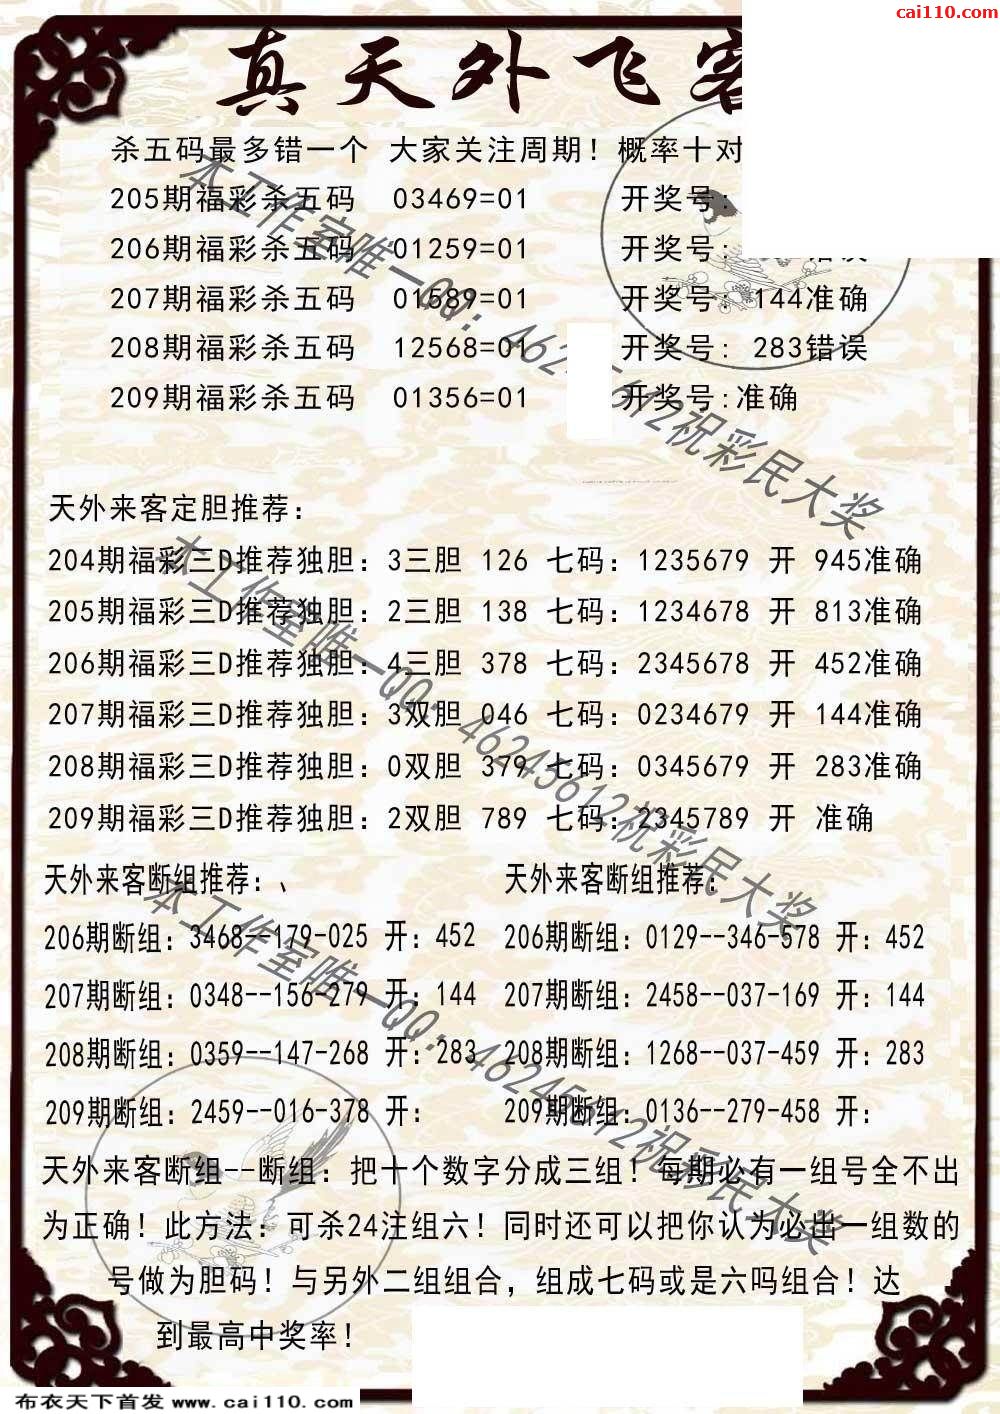 cai110.com
真天外飞客
杀五码最多错一个 大家关注周期！概率十对
205期福彩杀五码 03469=01 开奖号:
206期福彩杀五码 01259=01 开奖号: 错误
207期福彩杀五码 01589=01 开奖号: 144准确
208期福彩杀五码 12568=01 开奖号: 283错误
209期福彩杀五码 01356=01 开奖号:准确
天外来客定胆推荐：
204期福彩三D推荐独胆：3三胆 126 七码：1235679 开 945准确
205期福彩三D推荐独胆：2三胆 138 七码：1234678 开 813准确
206期福彩三D推荐独胆：4三胆 378 七码：2345678 开 452准确
207期福彩三D推荐独胆：3双胆 046 七码：0234679 开 144准确
208期福彩三D推荐独胆：0双胆 379 七码：0345679 开 283准确
209期福彩三D推荐独胆：2双胆 789 七码：2345789 开 准确
天外来客断组推荐：、 天外来客断组推荐：
206期断组：3468--179-025 开：452 206期断组：0129--346-578 开：452
207期断组：0348--156-279 开：144 207期断组：2458--037-169 开：144
208期断组：0359--147-268 开：283 208期断组：1268--037-459 开：283
209期断组：2459--016-378 开： 209期断组：0136--279-458 开：
天外来客断组--断组：把十个数字分成三组！每期必有一组号全不出
为正确！此方法：可杀24注组六！同时还可以把你认为必出一组数的
号做为胆码！与另外二组组合，组成七码或是六吗组合！达
到最高中奖率！
本工作室唯一QQ：46245612祝彩民大奖
本工作室唯一QQ：46245612祝彩民大奖
本工作室唯一QQ：46245612祝彩民大奖
布衣天下首发 www.cai110.com